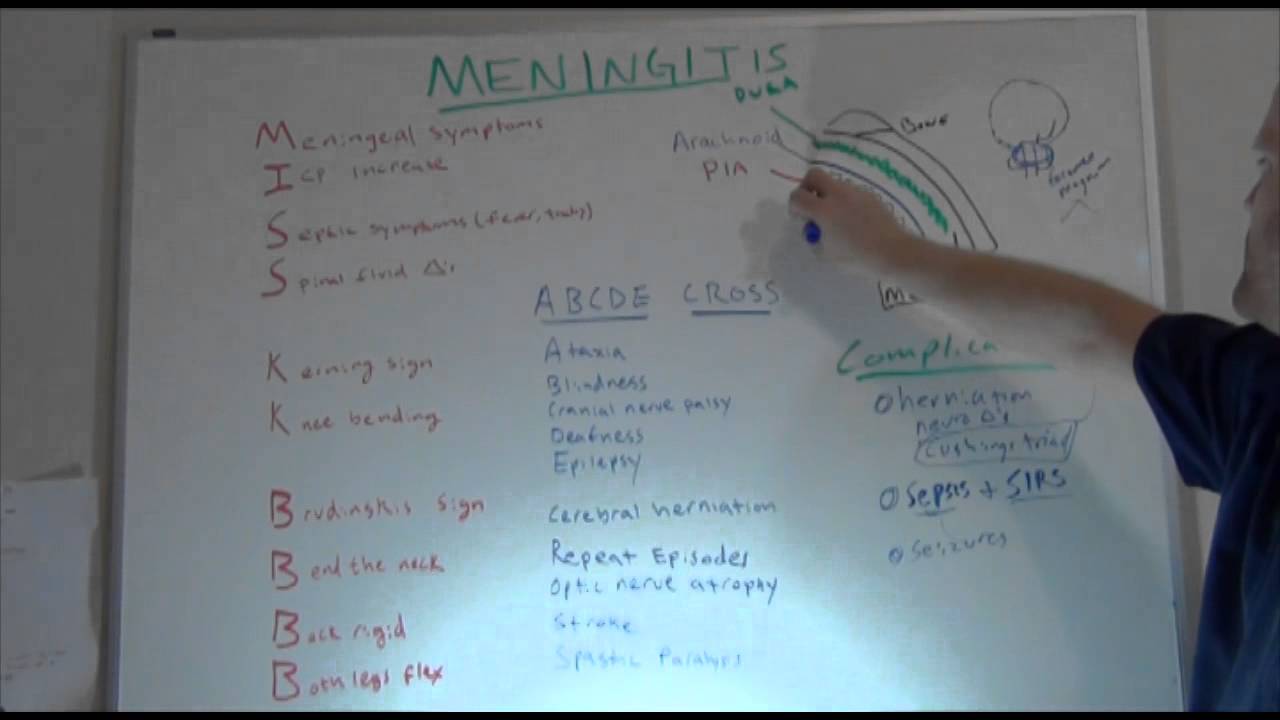 MENINGITIS
Meningeal symptoms
ICP increase
Septic symptoms (fever,
Spinal fluid Δ's
Kerning sign
Knee bending
Brudinskis sign
Bend the neck
Back rigid
Both legs flex
ABCDE CROSS
Ataxia
Blindness
Cranial nerve palsy
Deafness
Epilepsy
Cerebral herniation
Repeat Episodes
Optic nerve atrophy
Stroke
Spastic Paralysis
DURA
Arachnoid
PIA
Bone
Complica
herniation
neuro Δ's
Cushings triad
Sepsis + SIRS
Seizures